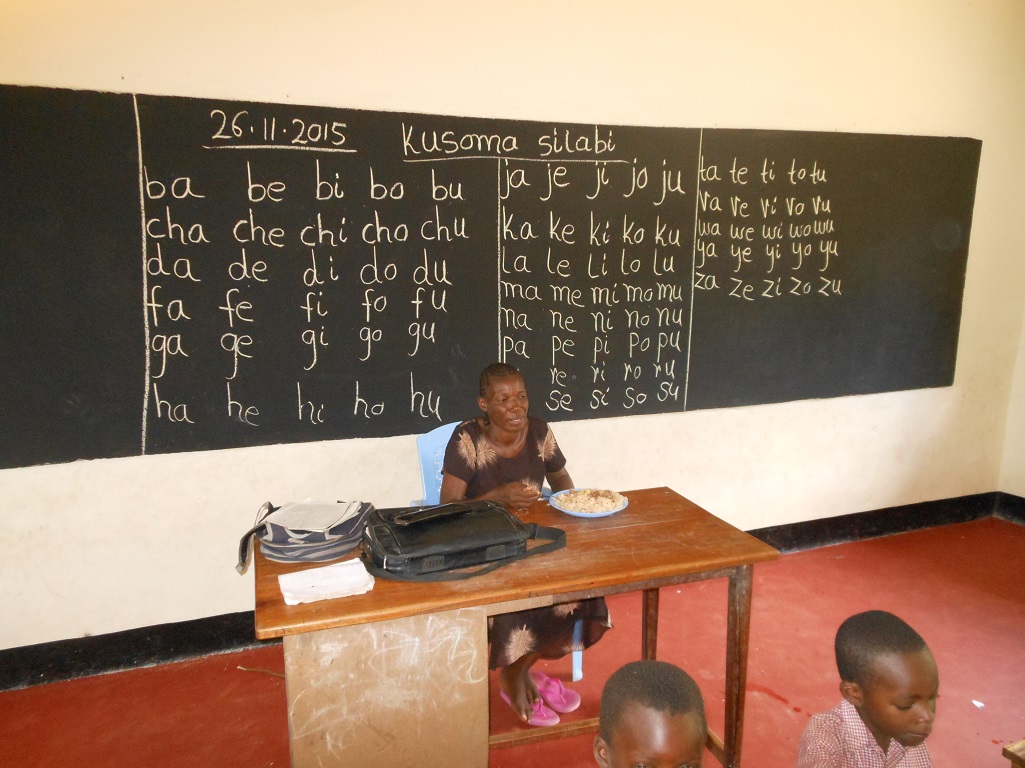 26.11.2015 Kusoma silabi
ba be bi bo bu
cha che chi cho chu
da de di do du
fa fe fi fo fu
ga ge gi go gu
ha he hi ho hu
ja je ji jo ju
ka ke ki ko ku
la le li lo lu
ma me mi mo mu
na ne ni no nu
pa pe pi po pu
re ri ro ru
se si so su
ta te ti to tu
va ve vi vo vu
wa we wi wo wu
ya ye yi yo yu
za ze zi zo zu